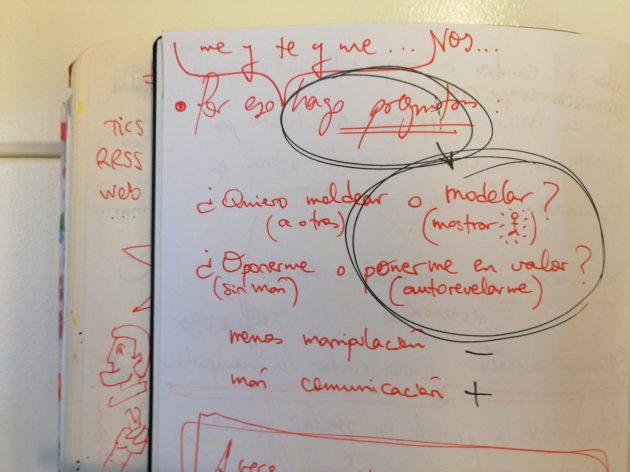 me y te y me ... Nos...
• Por eso hago preguntas:
TICS
RRSS
web
...
¿Quiero moldear o modelar?
(a otras) (mostrar)
¿Oponerme o ponerme en valor?
(sin más) (autorevelarme)
menos manipulación -
más comunicación +
A veces